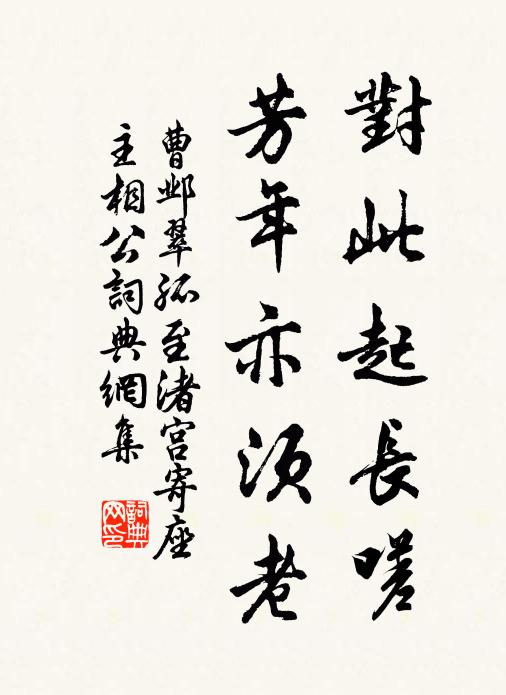 對此起長嗟
芳年亦須老
曹鄴翠孤至渚宮寄座
主相公詞典網集
詞典
网印